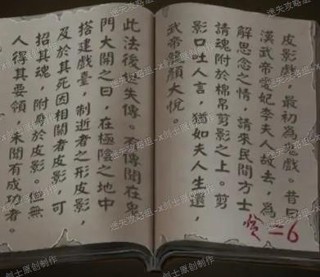 皮影戲，最初為鬼戲。昔日
漢武帝愛妃李夫人故去，為
解思念之情，請來民間方士
請魂附於棉帛剪影之上。剪
影口吐人言，猶如夫人生還，
武帝龍顏大悅。
=6
此法後世失傳。有傳聞在鬼
門大開之日，在極陰之地中
搭建戲臺，制逝者之形皮影，
及於其死因相關者皮影，可
招其魂，附身於皮影。但無
人得其要領，未聞有成功者。
迷失攻略組
x剑士原创制作